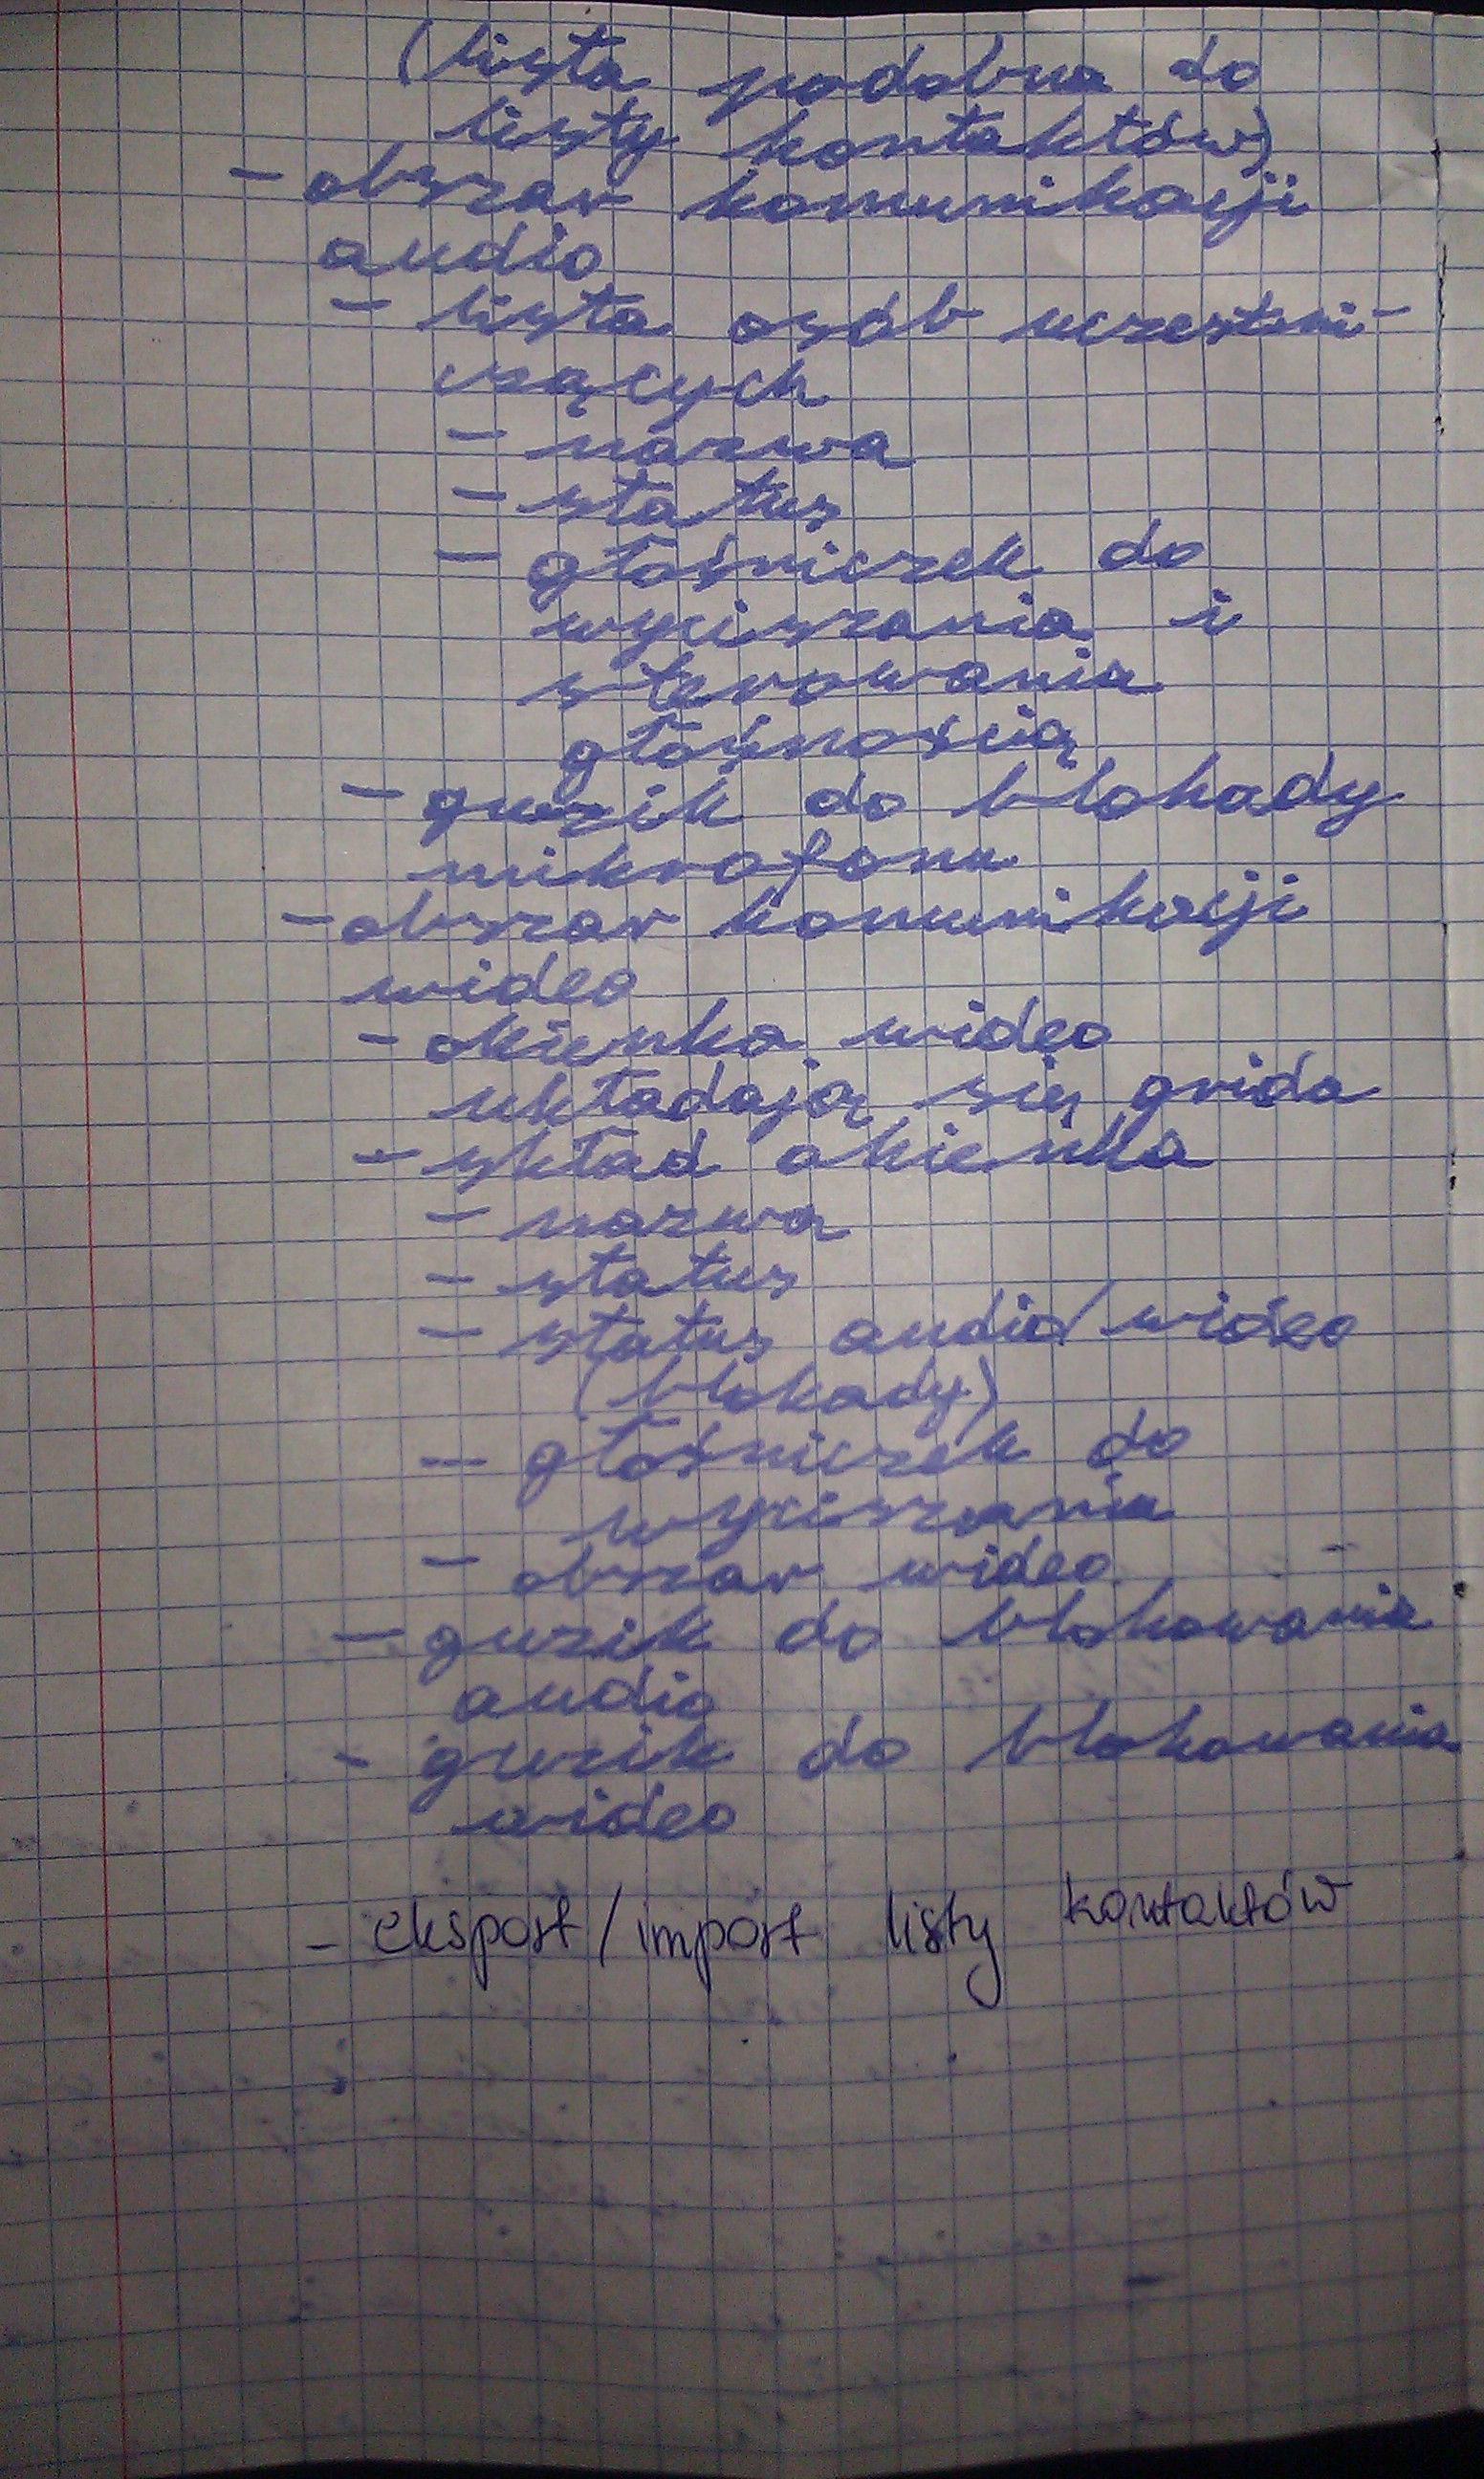 (lista podobna do
listy kontaktów)
- obszar komunikacji
audio
- lista osób uczestni-
czących
- nazwa
- status
- głośniczek do
wyciszania i
sterowania
głośnością
- guzik do blokady
mikrofonu
- obszar komunikacji
wideo
- okienka wideo
układają się grida
- skład okienka
- nazwa
- status
- status audio/wideo
(blokady)
- głośniczek do
wyciszania
- obszar wideo
- guzik do blokowania
audio
- guzik do blokowania
wideo
- eksport/import listy kontaktów